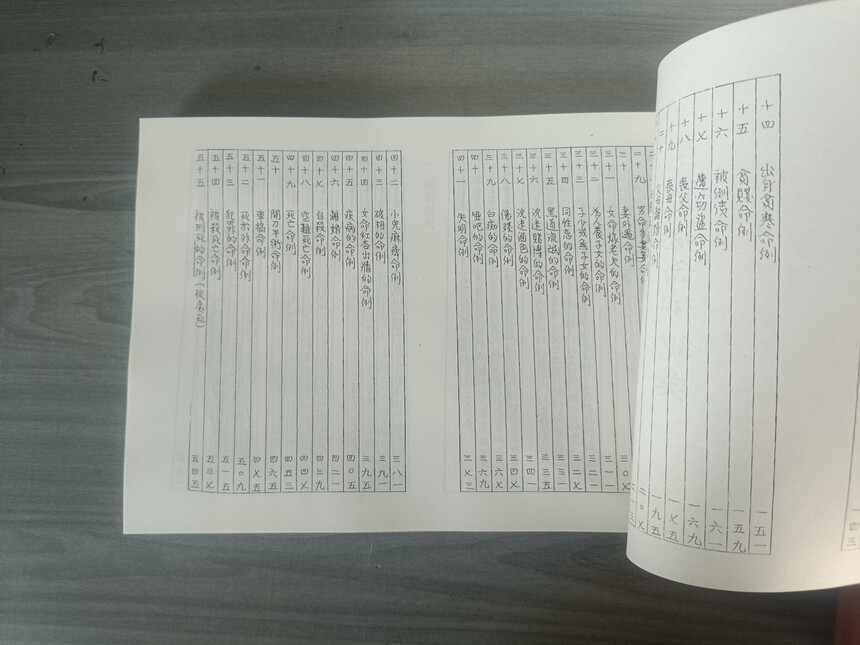 十四 出身貧寒命例 一五一
十五 貪賤命例 一五九
十六 被倒債命例 一六一
十七 遭小偷盜命例 一六九
十八 喪父命例 一七五
十九 喪母命例 一九五
二十 父母離婚命例 二〇七
二十九 男命多妻妾命例
三十 妻外遇命例 三〇七
三十一 女命嫁老夫的命例 三一一
三十二 為人養子女的命例 三二一
三十三 子少或無子女的命例 三二七
三十四 同性戀的命例 三三一
三十五 黑道流氓的命例 三三五
三十六 沈迷賭博的命例 三四一
三十七 沈迷酒色的命例 三四七
三十八 傷殘的命例 三六七
三十九 白痴的命例 三六九
四十 啞吧的命例 三七二
四十一 失明命例 三七三
四十二 小兒麻痺命例 三八一
四十三 破相的命例 三九一
四十四 女命紅杏出牆的命例 三九五
四十五 疾病的命例 四〇五
四十六 離婚命例 四二一
四十七 自殺命例 四三九
四十八 空難死亡命例 四四七
四十九 死亡命例 四五三
五十 開刀手術命例 四六五
五十一 車禍命例 四七五
五十二 死於非命命例 五〇九
五十三 犯罪的命例 五一五
五十四 被殺死亡命例 五三七
五十五 被刑死的命例(後為死) 五四五